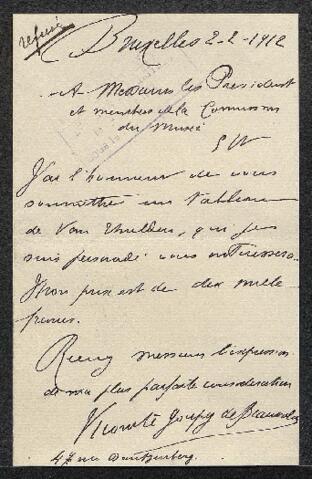 refusé
Bruxelles 2-2-1912
A Messieurs les President
et membres de la Commission
du musée
E V
J'ai l'honneur de vous
soumettre un tableau
de Van Thulden, qui je
suis persuadé vous intéressera.
Mon prix est de dix mille
francs.
Recevez messieurs l'expression
de ma plus parfaite considération
Vicomte Goupy de
47 rue